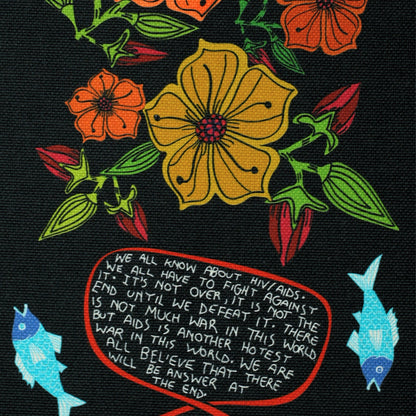 WE ALL KNOW ABOUT HIV/AIDS.
WE ALL HAVE TO FIGHT AGAINST
IT. IT'S NOT OVER, IT IS NOT THE
END UNTIL WE DEFEAT IT. THERE
IS NOT MUCH WAR IN THIS WORLD
BUT AIDS IS ANOTHER HOTEST
WAR IN THIS WORLD. WE ARE
ALL BEL'EVE THAT THERE
WILL BE ANSWER AT
THE END